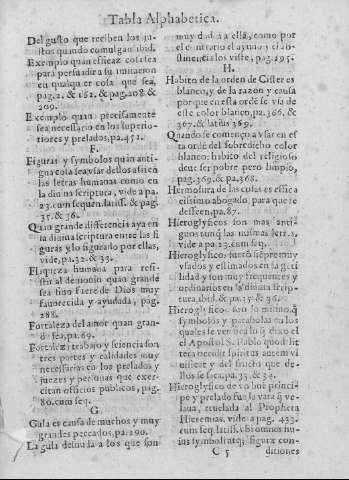 Tabla Alphabetica.
Del gusto que reciben los ju
stos quando comulgan ibid.
Exemplo quan efficaz cosa sea
para persuadir a su imitacion
en qualquier cosa que sea,
pag. 2. & 162. & pag. 208 &
209.
Exemplo quan precisamente
sea necessario en los superio-
riores y prelados, pa. 452.
F.
Figuras y symbolos quan anti-
gua cosa sea vsar destos assi en
las letras humanas como en
la diuina scriptura, vide a pa.
23. cum sequen. latiss. & pag.
35. & 36.
Quan grande differencia aya en
la diuina scriptura entre las fi
guras y lo figurado por ellas,
vide, pa. 32. & 33.
Flaqueza humana para resi-
stir al demonio quan grande
sea sino fuere de Dios muy
fauorecida y ayudada, pag.
288.
Fortaleza del amor quan gran-
de sea, pa. 69.
Fortaleza trabajo y sciencia son
tres partes y calidades muy
necessarias en los prelados y
juezes y personas que exer-
citan officios publicos, pag.
80. cum seq.
G
Gula es causa de muchos y muy
grandes peccados, pa. 290.
La gula desnuda a los que son
muy dados a ella, como por
el contrario el ayuno y el ab-
stinencia los viste, pag. 295.
H.
Habito de la orden de Cister es
blanco, y de la razon y causa
porque en esta orde se vso de
este color blanco, pa. 366. &
367. & latius 369.
Quando se començo a vsar en es
ta ordé del sobredicho color
blanco: habito del religioso
deue ser pobre pero limpio,
pag. 369. & pa. 368.
Hermosura de las cosas es effica
cissimo abogado para que se
desseen, pa. 87.
Hieroglyficos son mas anti-
guos aunq̃ las mismas letras,
vide a pa. 23. cum seq.
Hieroglyficos fueró siépre muy
vsados y estimados en la gé̃ti
lidad y son muy frequentes y
ordinarios en la diuina scrip-
tura, ibid. & pa. 35. & 36.
Hieroglyficos son lo mismo q̃
symbolos y parabolas en los
quales se verifica lo q̃ dixo el
el Apostol S. Pablo quod lit
tera occidit spiritus autem vi
uificat y del fructo que de-
llos se saca, pa. 33. & 34.
Hieroglyfico de vn buē princi-
pe y prelado fue la vara q̃ ve-
laua, reuelada al Propheta
Hieremias, vide a pag. 433.
cum seq. latiss. vbi omnes hu-
ius symboli atq; figuræ con-
C 5 ditiones